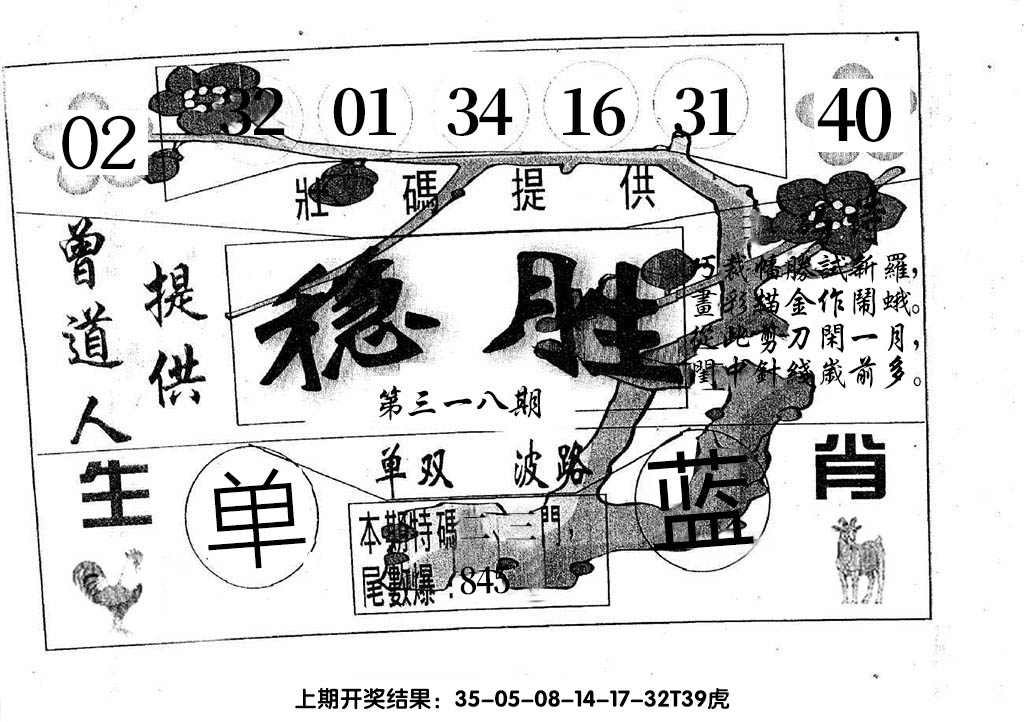 02 32 01 34 16 31 40
壯碼提供
特
曾道人
提供
稳胜
第三一八期
巧裁幡勝試新羅，
畫彩描金作鬧蛾。
從此剪刀閑一月，
閨中針綫歲前多。
单双 波路
生
肖
单
蓝
本期特碼二、三門，
尾數爆：845
上期开奖结果：35-05-08-14-17-32T39虎